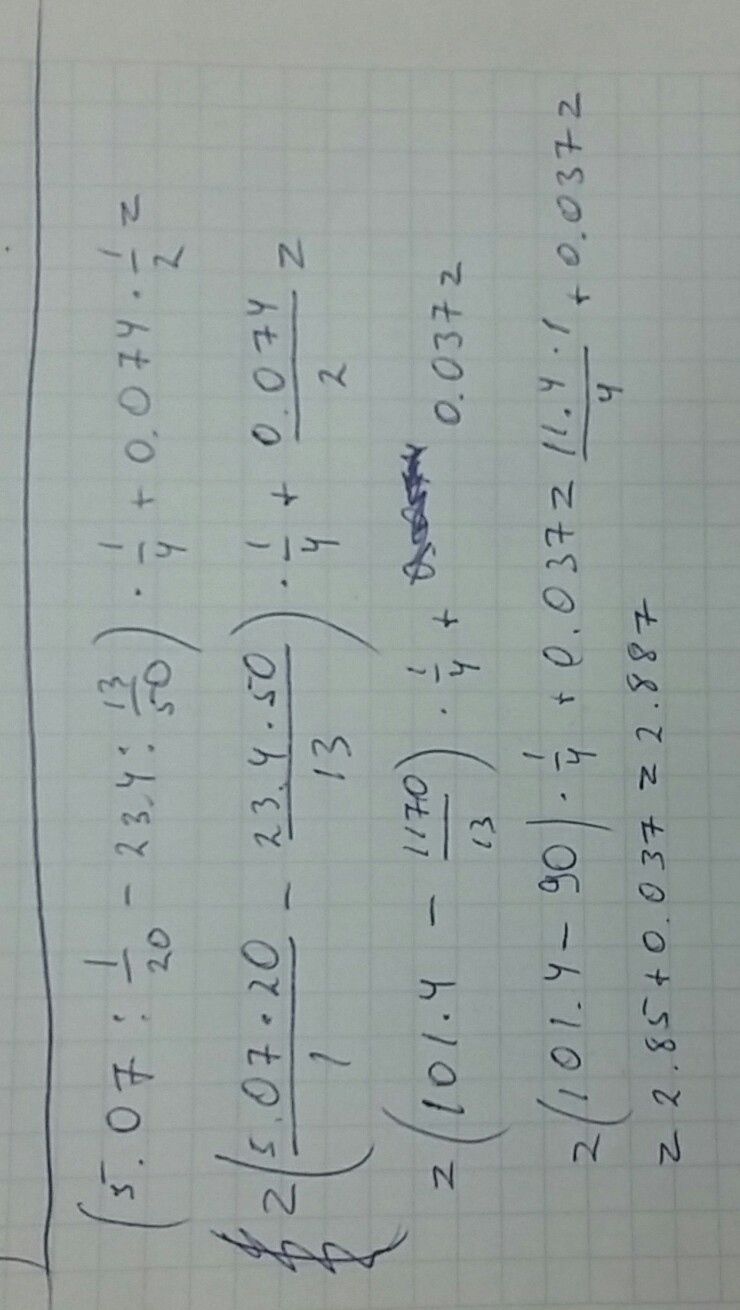 (5.07 : 1/20 - 23.4 : 13/50) · 1/4 + 0.074 · 1/2 =
= (5.07 · 20/1 - 23.4 · 50/13) · 1/4 + 0.074/2 =
= (101.4 - 1170/13) · 1/4 + 0.037 =
= (101.4 - 90) · 1/4 + 0.037 = 11.4 · 1/4 + 0.037 =
= 2.85 + 0.037 = 2.887